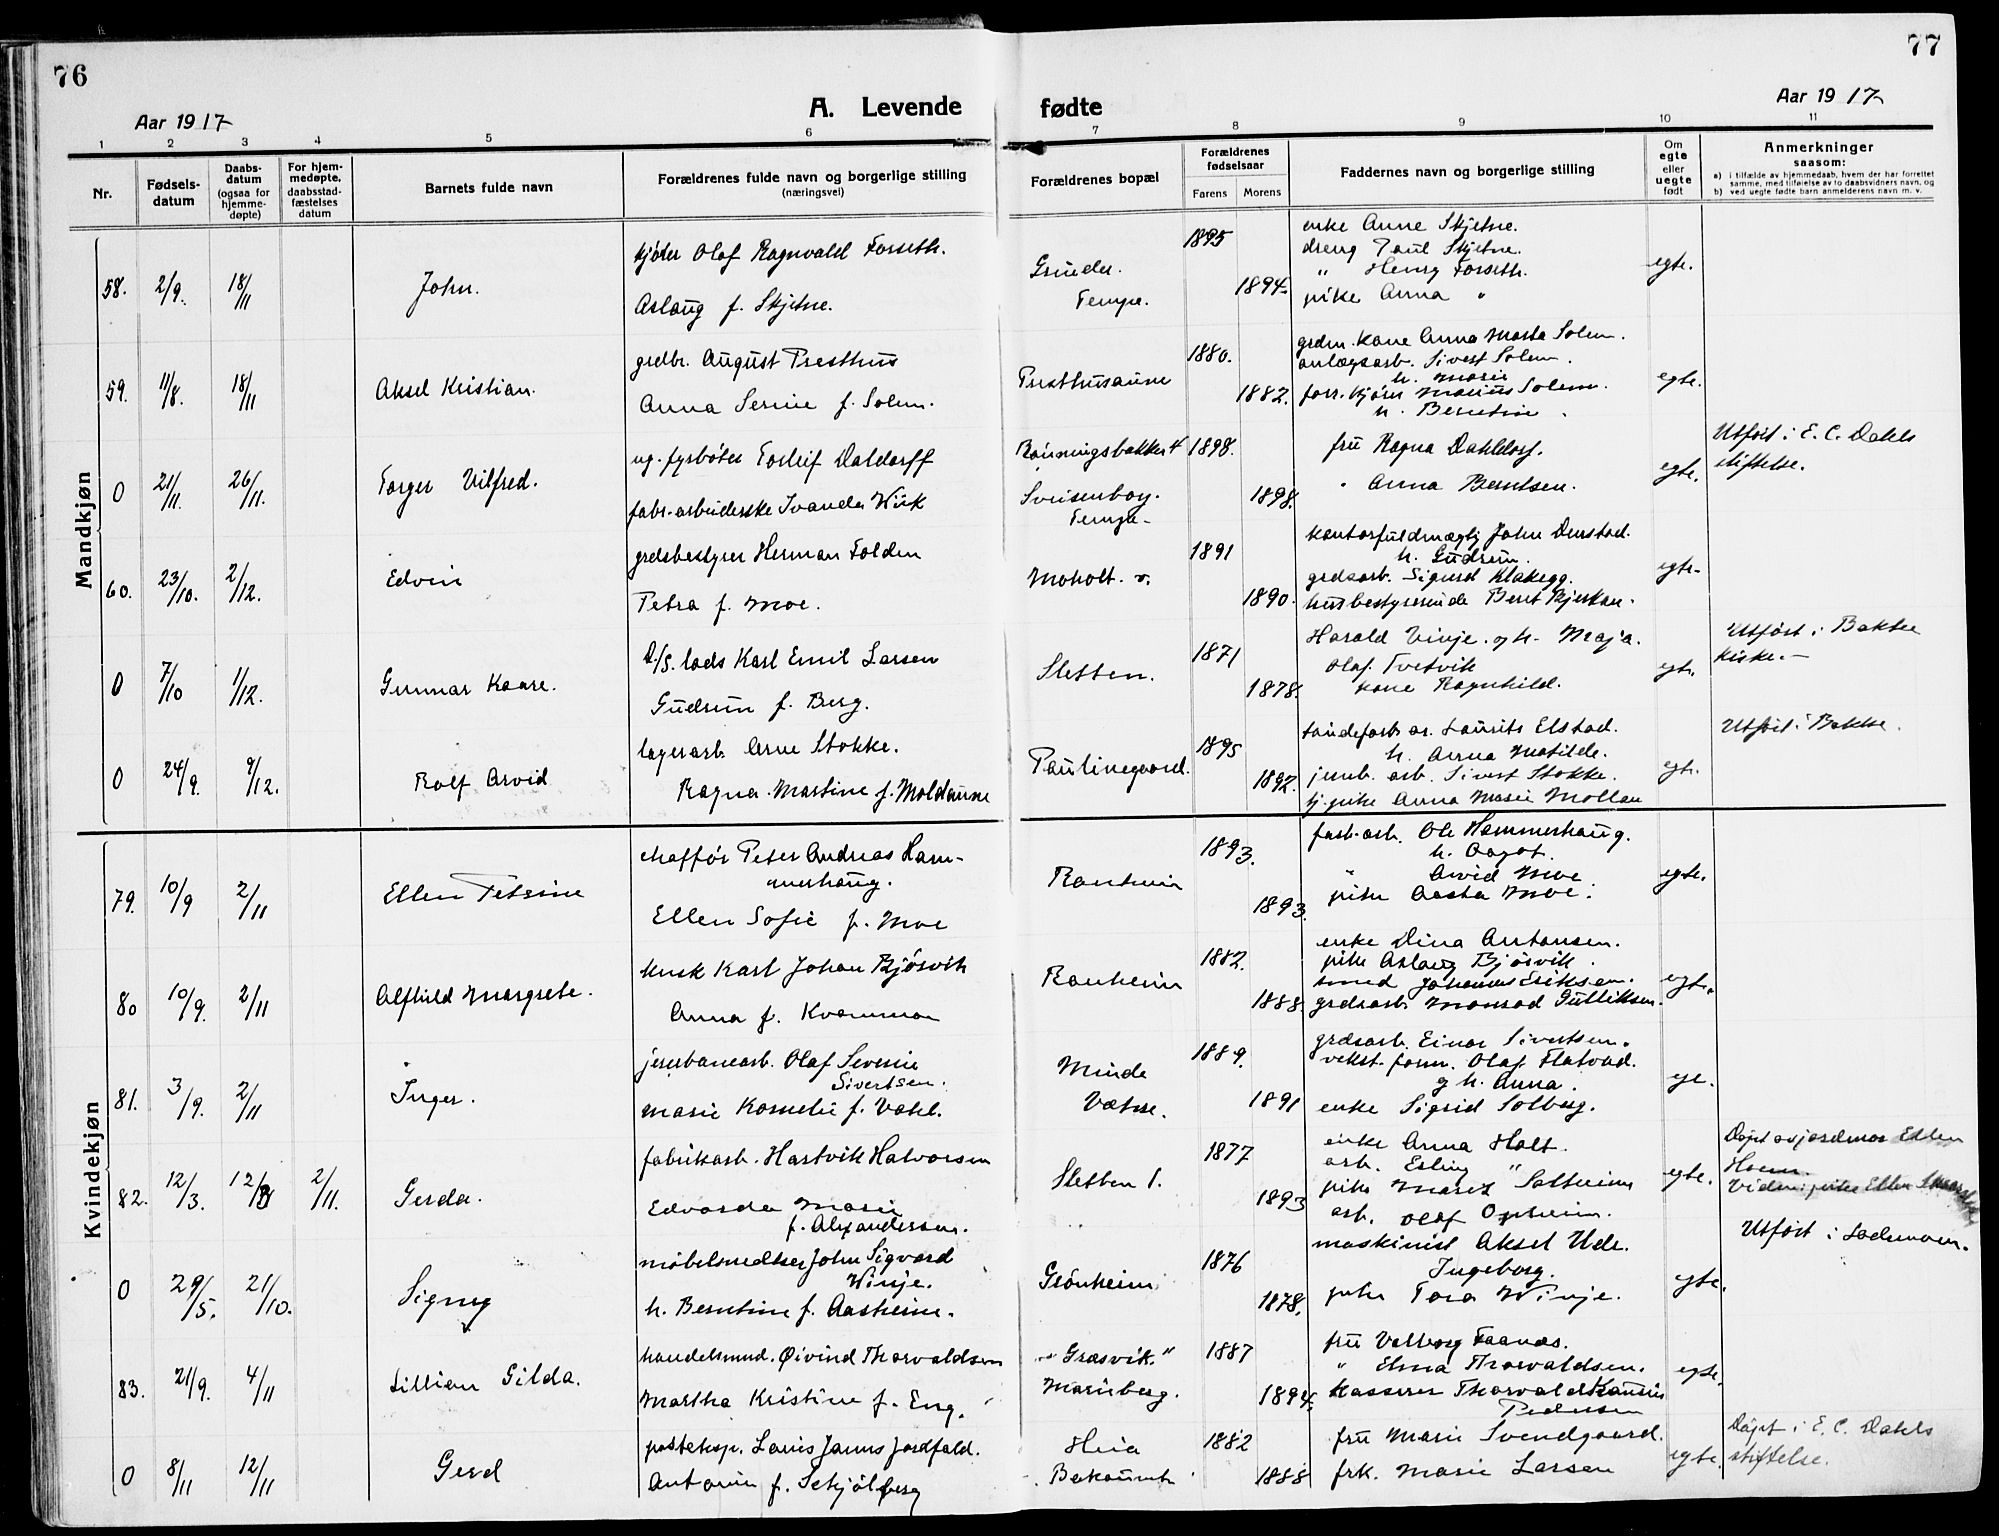 76
77
Aar 1917
A. Levende fødte
Aar 1917
1 2 3 4 5 6 7 8 9 10 11
Nr.
Fødsels-
datum
Daabs-
datum
(ogsaa for
hjemme-
døpte)
For hjem-
medøpte,
daabsstad-
fæstelses
datum
Barnets fulde navn
Forældrenes fulde navn og borgerlige stilling
(næringsvei)
Forældrenes bopæl
Forældrenes
fødselsaar
Farens Morens
Faddernes navn og borgerlige stilling
Om
egte
eller
uegte
født
Anmerkninger
saasom:
a) i tilfælde av hjemmedaab, hvem der har forrettet
samme, med tilføielse av to daabsvidners navn, og
b) ved uegte fødte barn anmelderens navn m. v.
Mandkjøn
58. 2/9. 18/11 John.
kjører Olaf Ragnvald Forseth.
Aslaug f. Skjetne.
Tempe.
1895
1894.
enke Anne Skjetne.
dreng Paul Skjetne.
" Henry Forseth.
pike Anna "
egte.
59. 11/8. 18/11 Aksel Kristian.
grdbr. August Presthus
Anna Serine f. Solem.
Presthusaune
1880.
1882.
grdm. kone Anna Marta Solem.
anlægsarb. Sivert Solem.
h. Marie
forr. kjører Marius Solem.
h. Berntine
egte.
0 21/11. 26/11. Torger Vilfred.
ug. fyrbøter Torleif Daldorff
fabr.arbeiderske Ivanda Wiik
Rønningsbakken 4
Tempe
1898.
1898.
fru Ragna Dahldorf.
" Anna Berntsen.
egte.
Utført i E. C. Dahls
stiftelse.
60. 23/10. 2/12. Edvin
grdsbestyrer Herman Folden
Petra f. Moe.
Moholt. v.
1891
1890.
kontorfuldmægtig John Denstad.
h. Gudrun.
grdsarb. Sigurd Klakegg.
husbestyrerinde Beret Bjerkan.
egte.
0 7/10 1/12. Gunnar Kaare.
D/S. lods Karl Emil Larsen
Gudrun f. Berg.
Sletten.
1871
1878.
Harald Vinje og h. Maja.
Olaf Tvetvik
kone Ragnhild.
egte.
Utført i Bakke
kirke.
0 24/9. 9/12. Rolf Arvid
lagerarb. Arne Stokke.
Ragna Martine f. Moldaune
Paulinegaard.
1895
1892.
Laurits Elstad.
h. Anna Matilde.
jernb. arb. Sivert Stokke.
tj.pike Anna Marie Mollan
egte.
Utført i Bakke.
Kvindekjøn
79. 10/9 2/11 Ellen Petrine
chaffør Peter Andreas Ham-
merhaug.
Ellen Sofie f. Moe
Ranheim
1893.
1893.
fabr.arb. Ole Hammerhaug.
h. Aagot.
" Arvid Moe
pike Aasta Moe.
egte.
80 10/9. 2/11 Alfhild Margrete.
kusk Karl Johan Bjørvik
Anna f. Kvammen
Ranheim
1882.
1888.
enke Dina Antonsen.
pike Aslaug Bjørvik.
smed Johannes Eriksen.
grdsarb. Monrad Gulliksen.
egte.
81. 3/9. 2/11 Inger.
jernbanearb. Olaf Severin
Sivertsen.
Marie Kornelie f. Vahl.
Minde
1889.
1891
grdsarb. Einar Sivertsen.
verkst.form. Olaf Flatvad.
og h. Anna.
enke Sigrid Solberg.
82. 12/3. 12/3 2/11. Gerda.
fabrikarb. Hartvik Halvorsen
Edvarda Marie
f. Alexandersen.
Sletten
1877
1893
enke Anna Holt.
arb. Erling "
pike Marit Solheim
arb. Olaf Opheim.
egte.
Døpt av jordmor Ellen
Hoem.
0 29/5. 21/10. Signy
møbelsnedker John Sigvard
Winje.
h. Berntine f. Aasheim.
Grønheim
1876
1878.
maskinist Aksel Ude.
Ingeborg.
pike Tora Winje.
egte.
Utført i Lademoen.
83. 21/9. 4/11 Lillian Gilda.
handelsmnd. Øivind Thorvaldsen
Martha Kristine f. Eng.
"Græsvik."
Marienberg.
1887
1894.
fru Valborg Faanæs.
" Elma Thorvaldsen.
kasserer Thorvald
Pedersen
egte.
0 8/11 12/11 Gerd
posteksp. Louis Janus Jordfald.
Antonie f. Schjølberg
1882
1888
fru Marie Svendgaard.
frk. Marie Larsen
egte.
Døpt i E. C. Dahls
stiftelse.